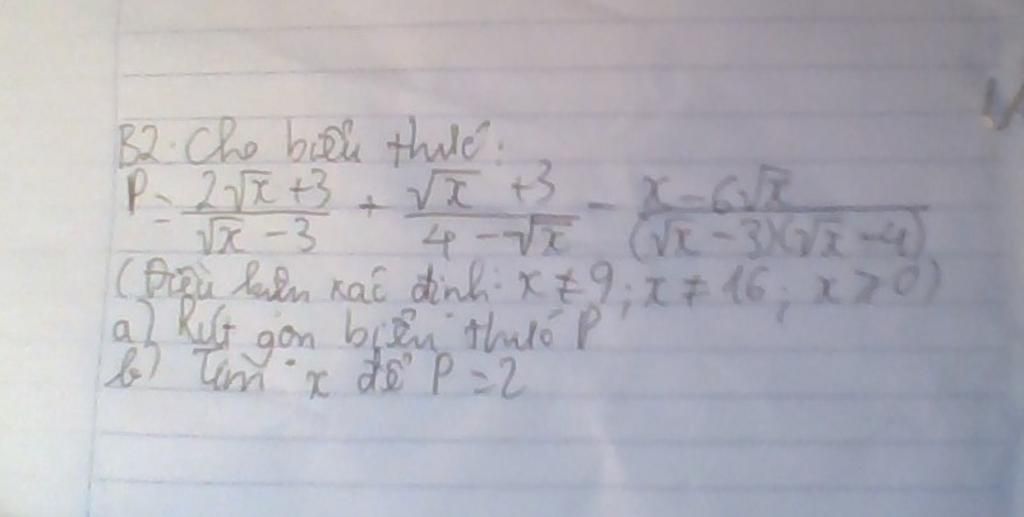 B2. Cho biểu thức:
P = \frac{2\sqrt{x}+3}{\sqrt{x}-3} + \frac{\sqrt{x}+3}{4-\sqrt{x}} - \frac{x-6\sqrt{x}}{(\sqrt{x}-3)(\sqrt{x}-4)}
(Điều kiện xác định: x ≠ 9; x ≠ 16; x ≥ 0)
a) Rút gọn biểu thức P
b) Tìm x để P = 2